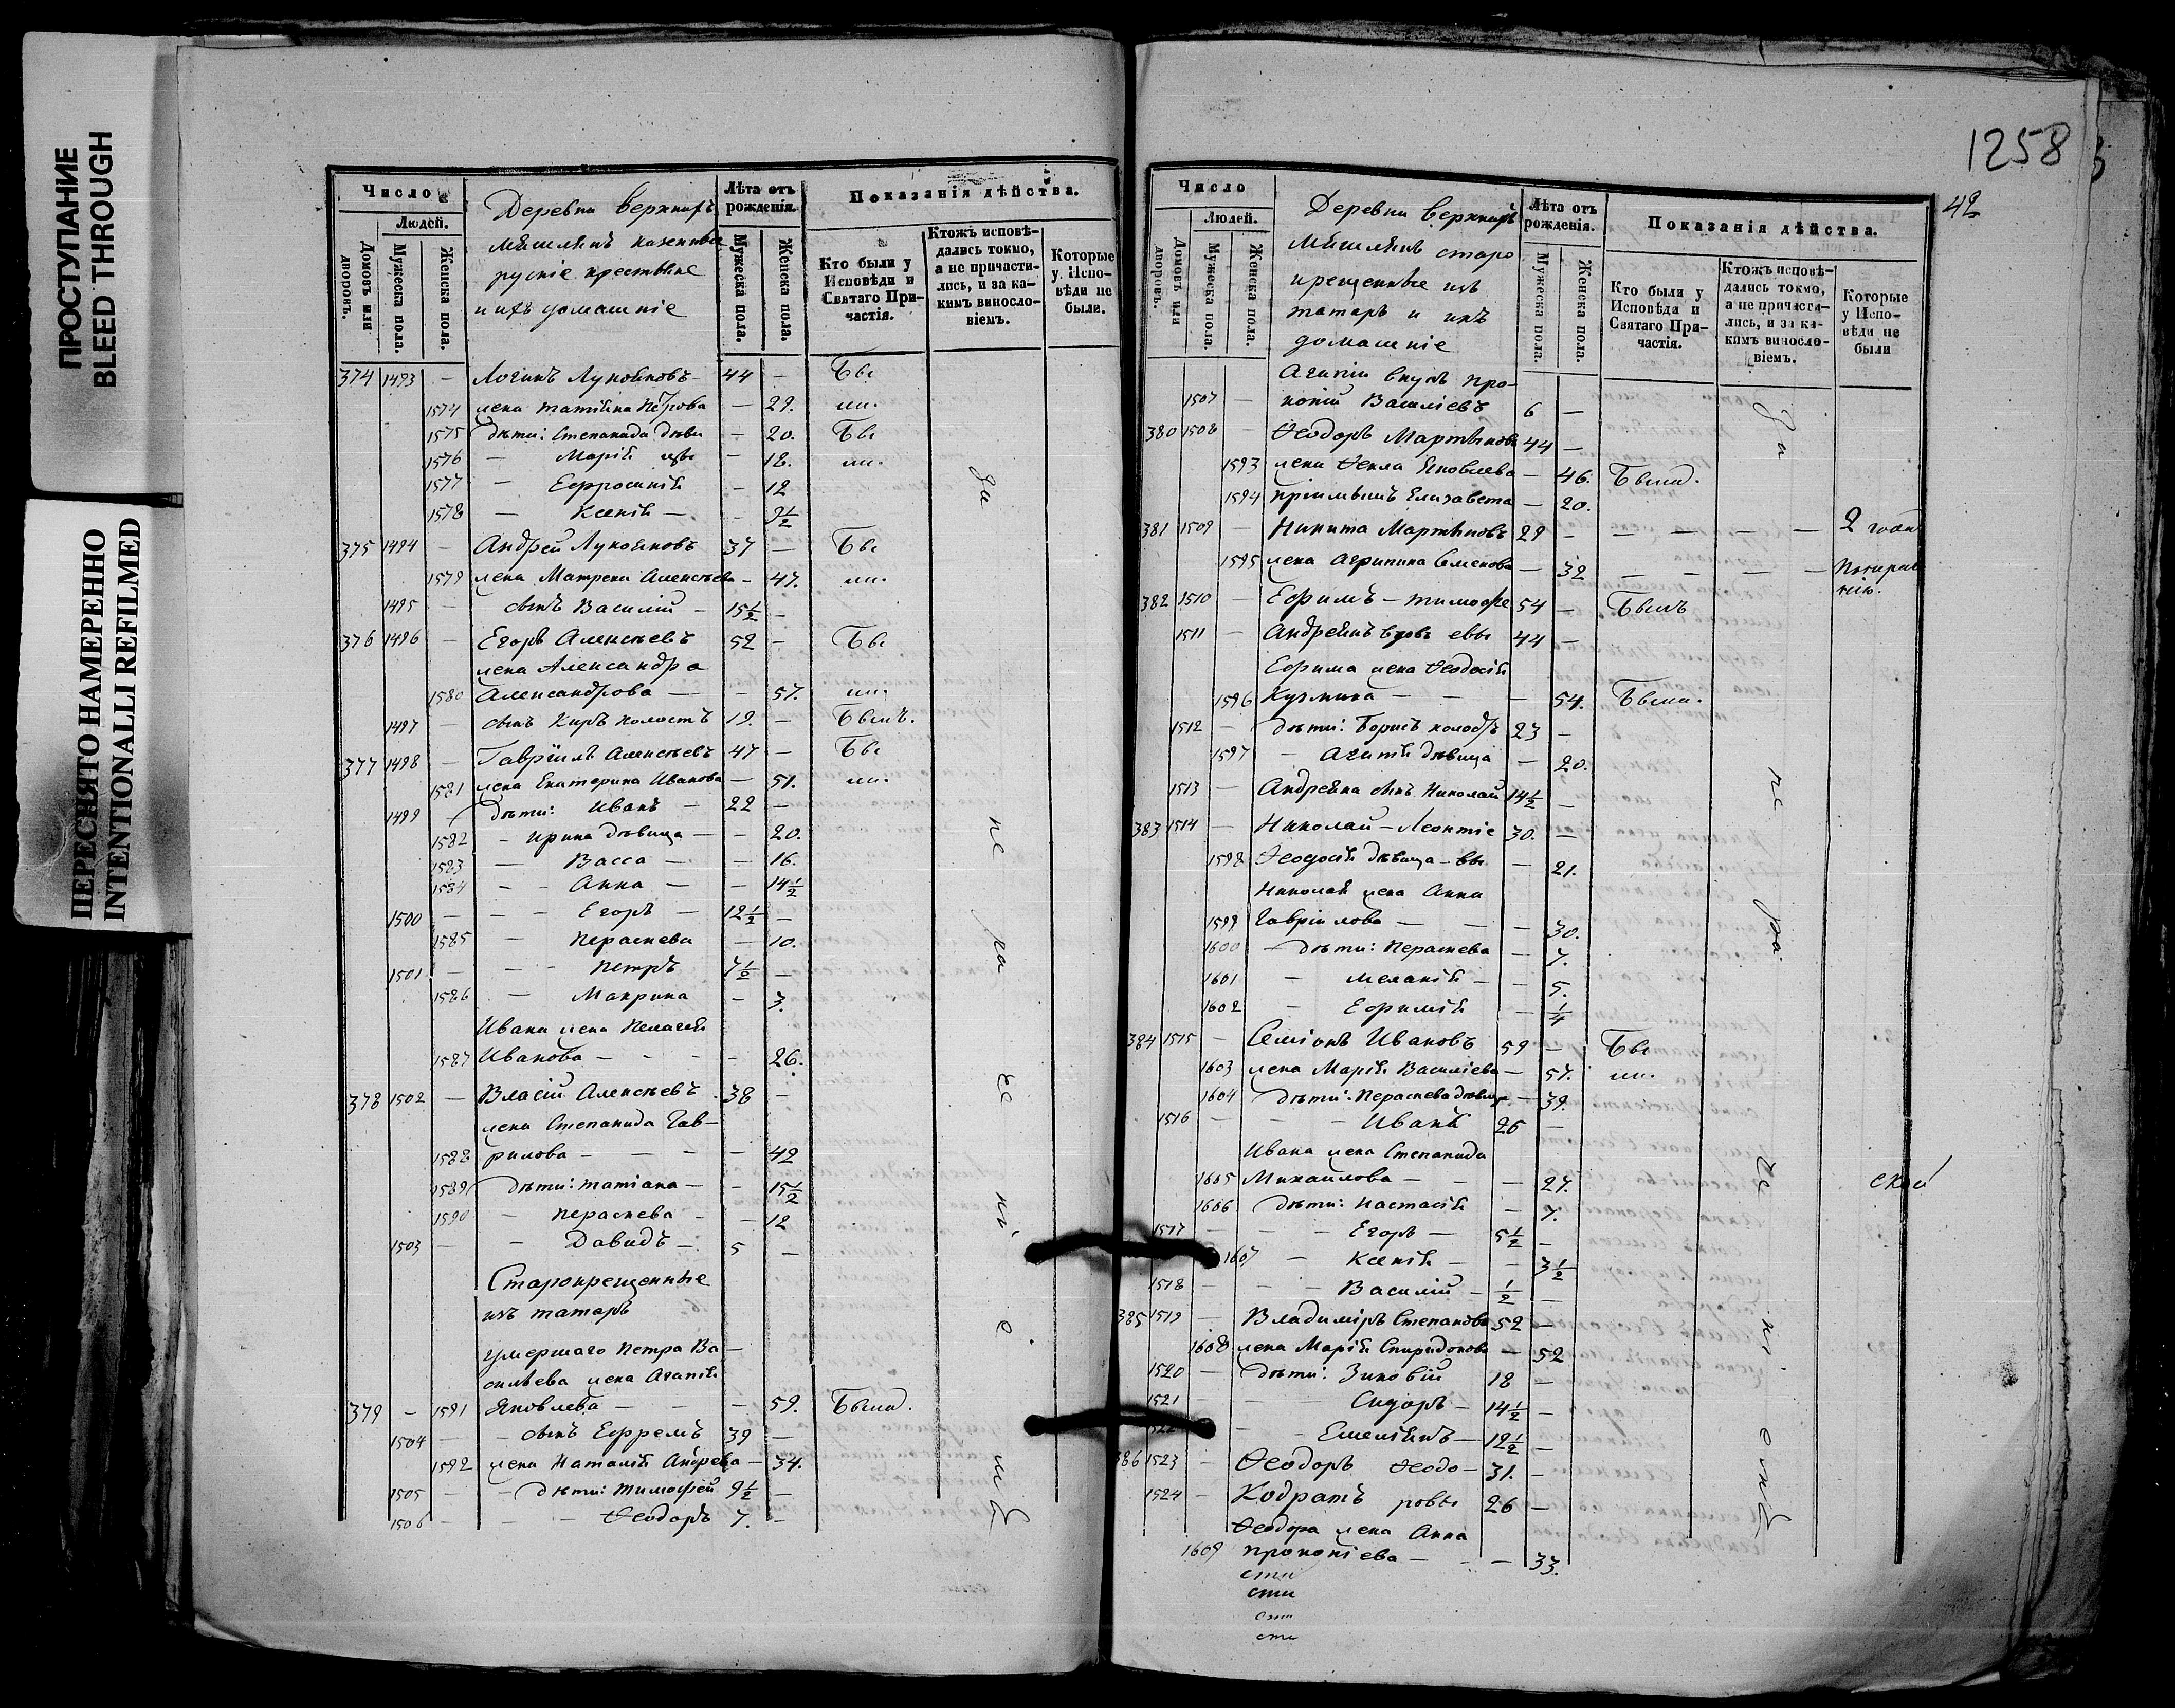 ПРОСТУПАНИЕ
BLEED THROUGH
ПЕРЕСНЯТО НАМЕРЕННО
INTENTIONALLI REFILMED
Число
Людей.
Домовъ или дворовъ.
Мужеска пола.
Женска пола.
Деревни Верхнихъ
русніе крестьяне
и ихъ домашніе
Лѣта отъ рожденія.
Мужеска пола.
Женска пола.
Показанія дѣйства.
Кто были у Исповѣди и Святаго При-частія.
Ктожъ исповѣ-дались токмо, а не причасти-лись, и за ка-кимъ винословіемъ.
Которые у Испо-вѣди не были.
374 1493 — Логинъ Лукояновъ 44 — Бы
1574 жена Татіяна Петрова — 29. ли.
1575 дѣти: Степанида дѣви — 20. Бы
1576 — Марія цы — 18. ли.
1577 — Евфросинія — 12
1578 — Ксенія — 9½
375 1494 — Андрей Лукояновъ 37 — Бы
1579 жена Матрена Алексѣева — 47. ли.
1495 — сынъ Василій — 15½ —
376 1496 — Егоръ Алексѣевъ 52 — Бы
жена Александра
1580 Александрова — — 57. ли.
1497 — сынъ Киръ холостъ 19. — Былъ.
377 1498 — Гавріилъ Алексѣевъ 47 — Бы
1581 жена Екатерина Иванова — 51. ли.
1499 дѣти: Иванъ — 22 —
1582 — Ирина дѣвица — — 20.
1583 — Васса — — 16.
1584 — — Анна — — 14½
1500 — — Егоръ — 12½ —
1585 — Параскева — 10.
1501 — — Петръ 7½ —
1586 — Макрина — 3.
Ивана жена Пелагея
1587 Иванова — — — 26.
378 1502 — Власій Алексѣевъ 38 —
жена Степанида Гав-
1588 рилова — — — 42
1589 дѣти: Татіана — — 15½
1590 — Параскева — — 12
1503 — — Давидъ — 5 —
Старокрещенные
изъ татаръ
умершаго Петра Ва-
сильева жена Агапія
379 — 1591 Яковлева — — — 59. Была.
1504 — — сынъ Ефремъ 39 —
1592 жена Наталія Андреева — 34.
1505 — — дѣти: Тимофей 9½ —
1506 — — — Ѳеодоръ 7. —
за не ра че ні е мъ
1258
42
Число
Людей.
Домовъ или дворовъ.
Мужеска пола.
Женска пола.
Деревни Верхнихъ
старо
крещенные изъ
татаръ и ихъ
домашніе
Лѣта отъ рожденія.
Мужеска пола.
Женска пола.
Показанія дѣйства.
Кто были у Исповѣди и Святаго При-частія.
Ктожъ исповѣ-дались токмо, а не причаста-лись, и за ка-кимъ винословіемъ.
Которые у Испо-вѣди не были
Агапіи внукъ Про-
1507 — копій Василіевъ 6 —
380 1508 — Ѳеодоръ Мартыновъ 44 —
1593 жена Ѳекла Яковлева — 46. Была.
1594 пріимышъ Елизавета — 20.
381 1509 — Никита Мартыновъ 29 — — — — — 2 года
1595 жена Агрипина Семенова — 32 — — — —
382 1510 — Ефимъ — Тимофе 54 — Былъ
1511 — Андреянъ вдовъ евы 44 —
Ефима жена Ѳеодосія
1596 Кузмина — — — 54. Была.
1512 — дѣти: Борисъ холостъ 23 —
1597 — Агапія дѣвица — 20.
1513 — Андреяна сынъ Николай 14½ —
383 1514 — Николай — Леонтіе 30. —
1598 Ѳеодосія дѣвица — вы — 21.
Николая жена Анна
1599 Гавріилова — — — 30.
1600 — дѣти: Параскева — 7.
1601 — Меланія — — 5.
1602 — Ефимія — ¼
384 1515 — Семіонъ Ивановъ 59 — Бы
1603 жена Марія Василіева — 57. ли.
1604 дѣти: Параскева дѣвица — 39.
1516 — — — Иванъ 26 —
Ивана жена Степанида
1605 Михаилова — — — 27.
1606 дѣти: Настасія — 7.
1517 — — — Егоръ — 5½ —
1607 — Ксенія — — 3½
1518 — — — Василій — ½ —
385 1519 — Владиміръ Степановъ 52 —
1608 жена Марія Спиридонова — 52
1520 — дѣти: Зиновій 18 —
1521 — — Сидоръ — 14½ —
1522 — — Емеліянъ — 12½ —
386 1523 — Ѳеодоръ Ѳеодо— 31. —
1524 — Кодратъ ровы 26 —
Ѳеодора жена Анна
1609 Прокопіева — — — 33.
сти
сти
сти
сти
за не ра че ні емъ